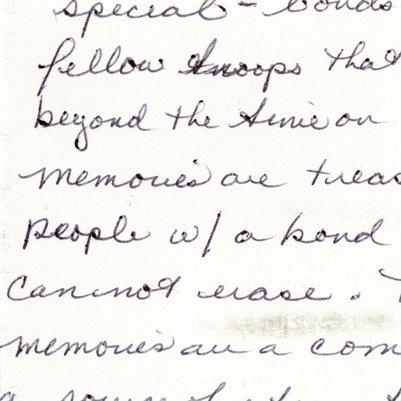 special - bonds
fellow troops that
beyond the time on
memories are treas
people w/ a bond
cannot erase.
memories are a com